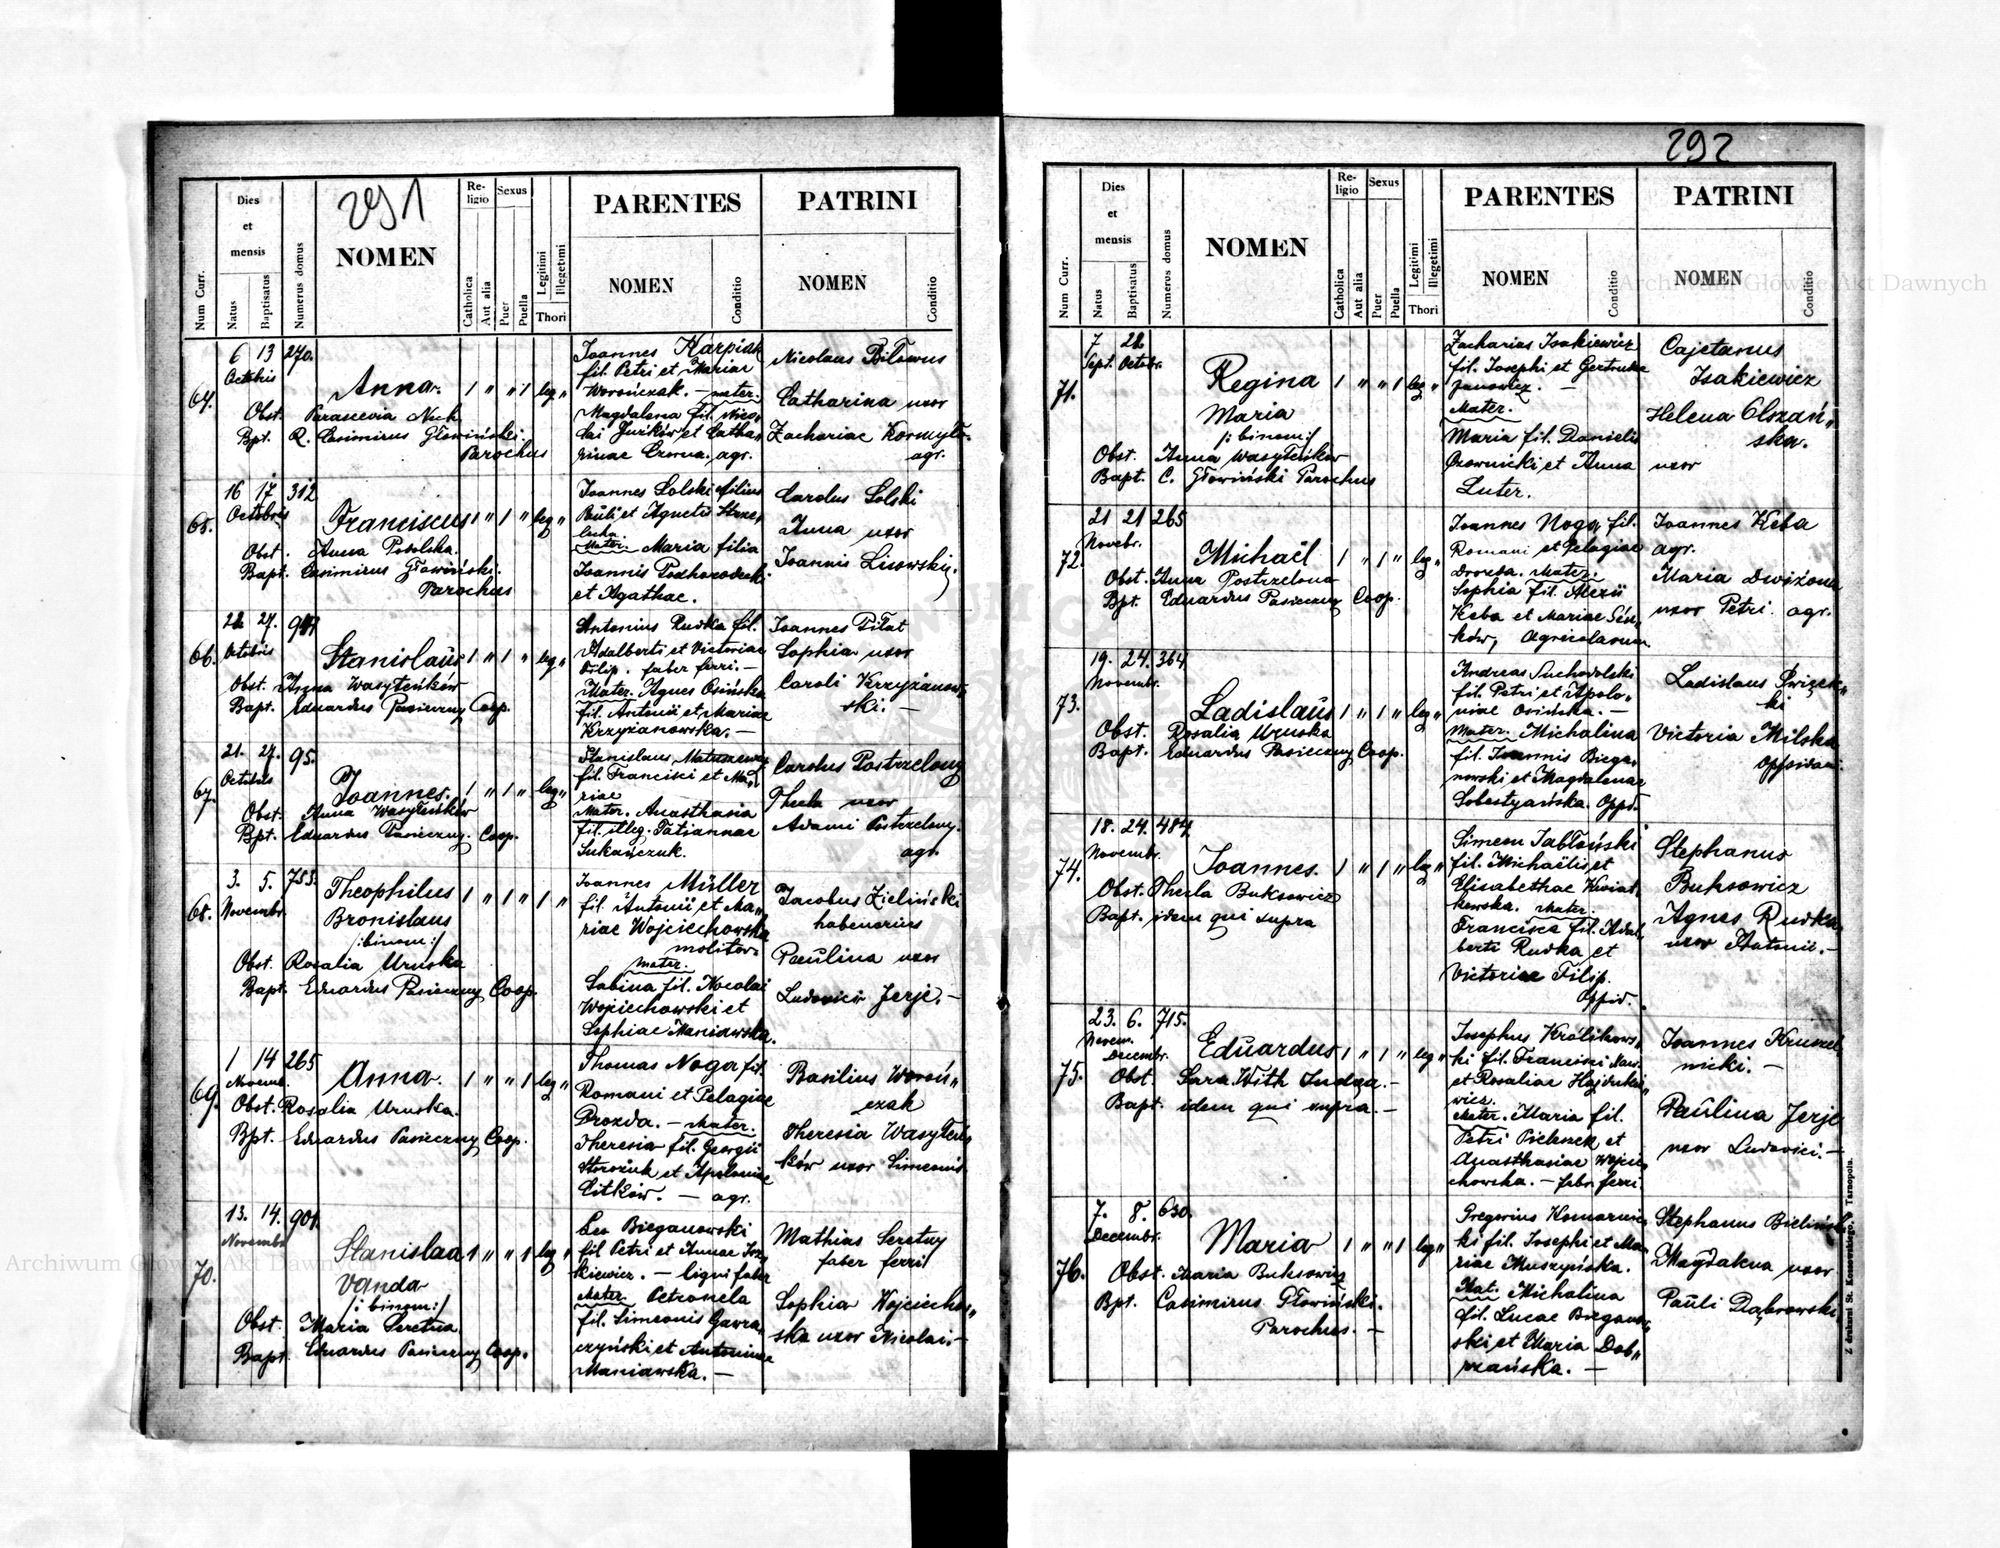 291
Num Curr.
Dies
et
mensis
Natus
Baptisatus
Numerus domus
NOMEN
Re-
ligio
Catholica
Aut alia
Sexus
Puer
Puella
Legitimi
Illegetimi
Thori
PARENTES
NOMEN
Conditio
PATRINI
NOMEN
Conditio
64.
6 13 270.
Octobris
Anna. 1 " " 1 leg "
Obst. Parascevia Nuck
Bpt. R. Casimirus Głowiński.
Parochus
Joannes Karpiak
fil. Petri et Mariae
Worończak. — mater.
Magdalena fil. Nico„
lai Jurków et Catha„
rinae Czorna. agr.
Nicolaus Biłowus
Catharina uxor
Zachariae Kormyło.
agr.
65.
16 17 312
Octobris
Franciscus 1 " 1 " leg "
Obst. Anna Podolska.
Bapt. Casimirus Głowiński.
Parochus
Joannes Solski filius
Pauli et Agnetis Strze„
lecka.
Mater. Maria filia
Joannis Podhorodecki
et Agathae.
Carolus Solski
Anna uxor
Joannis Lisowskij.
66.
22 27.
Octobris
Stanislaus 1 " 1 " leg "
Obst. Anna Wasyleńków
Bapt. Eduardus Pasieczny Coop.
Antonius Rudka fil.
Adalberti et Victoriae
Filip. faber ferri. —
Mater. Agnes Osińska
fil. Antonii et Mariae
Krzyżanowska. —
Joannes Piłat
Sophia uxor
Caroli Krzyżanow„
ski. —
67.
21. 27. 95.
Octobris
Joannes. 1 " 1 " leg "
Obst. Anna Wasyleńków
Bpt. Eduardus Pasieczny. Coop.
Stanislaus Matuszewsk
fil. Francisci et Ma„
riae
Mater. Anasthasia
fil. illeg. Tatiannae
Sukańczuk.
Carolus Postrzelony
Thecla uxor
Adami Postrzelony.
agr.
68.
3. 5. 753.
Novembr.
Theophilus 1 " 1 " 1 "
Bronislaus
/:binom:/
Obst. Rosalia Uruska
Bapt. Eduardus Pasieczny Coop.
Joannes Müller
fil. Antonii et Ma„
riae Wojciechowska
molitor.
Mater.
Sabina fil. Nicolai
Wojciechowski et
Sophiae Maniawska.
Jacobus Zieliński
habenarius
Paulina uxor
Ludovici Jerje. —
69.
1 14 265
Novemb.
Anna. 1 " " 1 leg "
Obst. Rosalia Uruska.
Bpt. Eduardus Pasieczny Coop.
Thomas Noga fil.
Romani et Pelagiae
Drozda. — Mater.
Theresia fil. Georgii
Storożuk et Apoloniae
Citków. — agr.
Basilius Woroń„
czak
Theresia Wasyleń„
ków uxor Simeonis
70.
13. 14. 901.
Novembr
Stanislaa 1 " " 1 leg "
Vanda
/:binom:/
Obst. Maria Seretna.
Bapt. Eduardus Pasieczny Coop.
Leo Bieganowski
fil Petri et Annae Isa„
kiewicz. — ligni faber
Mater. Petronela
fil. Simeonis Gawra„
czyński et Antoninae
Maniawska. —
Mathias Seretny
faber ferri
Sophia Wojciechow„
ska uxor Nicolai. —
292
Num Curr.
Dies
et
mensis
Natus
Baptisatus
Numerus domus
NOMEN
Re-
ligio
Catholica
Aut alia
Sexus
Puer
Puella
Legitimi
Illegetimi
Thori
PARENTES
NOMEN
Conditio
PATRINI
NOMEN
Conditio
71.
7 22.
Sept. Octobr.
Regina 1 " " 1 leg "
Maria
/:binom:/
Obst. Anna Wasyleńków
Bapt. C. Głowiński Parochus
Zacharias Isakiewicz
fil. Josephi et Gertrudae
Janowicz. —
Mater.
Maria fil. Danielis
Ozownicki et Anna
Luter.
Cajetanus
Isakiewicz
Helena Olszań„
ska.
uxor
72.
21 21 265
Novebr.
Michaël 1 " 1 " leg "
Obst. Anna Postrzelona
Bpt. Eduardus Pasieczny Coop.
Joannes Noga fil.
Romani et Pelagiae
Drozda. Mater.
Sophia fil. Alexii
Keba et Mariae Sen„
ków, Agricolarum
Joannes Keba
agr.
Maria Dwiżona
uxor Petri agr.
73.
19. 24. 364.
Novembr.
Ladislaus 1 " 1 " leg "
Obst. Rosalia Uruska
Bapt. Eduardus Pasieczny Coop.
Andreas Suchodolski
fil. Petri et Apolo„
niae Osińska. —
Mater. Michalina
fil. Joannis Biega„
nowski et Magdalenae
Sobestyańska. Oppi.
Ladislaus Święc„
ki
Victoria Milska
oppidan.
74.
18. 24. 484.
Novembr.
Joannes. 1 " 1 " leg "
Obst. Thecla Buksowicz
Bapt. idem qui supra
Simeon Jabłoński
fil. Michaëlis et
Elisabethae Kwiat„
kowska. Mater.
Francisca fil. Adal„
berti Rudka et
Victoriae Filip.
Oppid.
Stephanus
Buksowicz
Agnes Rudka
uxor Antonii. —
75.
23. 6. 715.
Novem.
Decembr.
Eduardus 1 " 1 " leg "
Obst. Sara With Judaa. —
Bapt. idem qui supra. —
Josephus Królikows„
ki fil. Francisci Xav.
et Rosaliae Hajduki„
wicz.
Mater. Maria fil.
Petri Pielenek et
Anasthasiae Wojcie„
chowska. — faber ferri.
Joannes Kruszel„
nicki. —
Paulina Jerje
uxor Ludovici. —
76.
7. 8. 630.
Decembr.
Maria 1 " " 1 leg "
Obst. Maria Buksowicz
Bpt. Casimirus Głowiński.
Parochus. —
Gregorius Komarnic„
ki fil. Josephi et Ma„
riae Muszyńska.
Mat. Michalina
fil. Lucae Biegano„
ski et Maria Dob„
rzańska. —
Stephanus Bieliński
Magdalena uxor
Pauli Dąbrowski
Z drukarni St. Kossowskiego, w Tarnopolu.
Archiwum Główne Akt Dawnych
Archiwum Główne Akt Dawnych